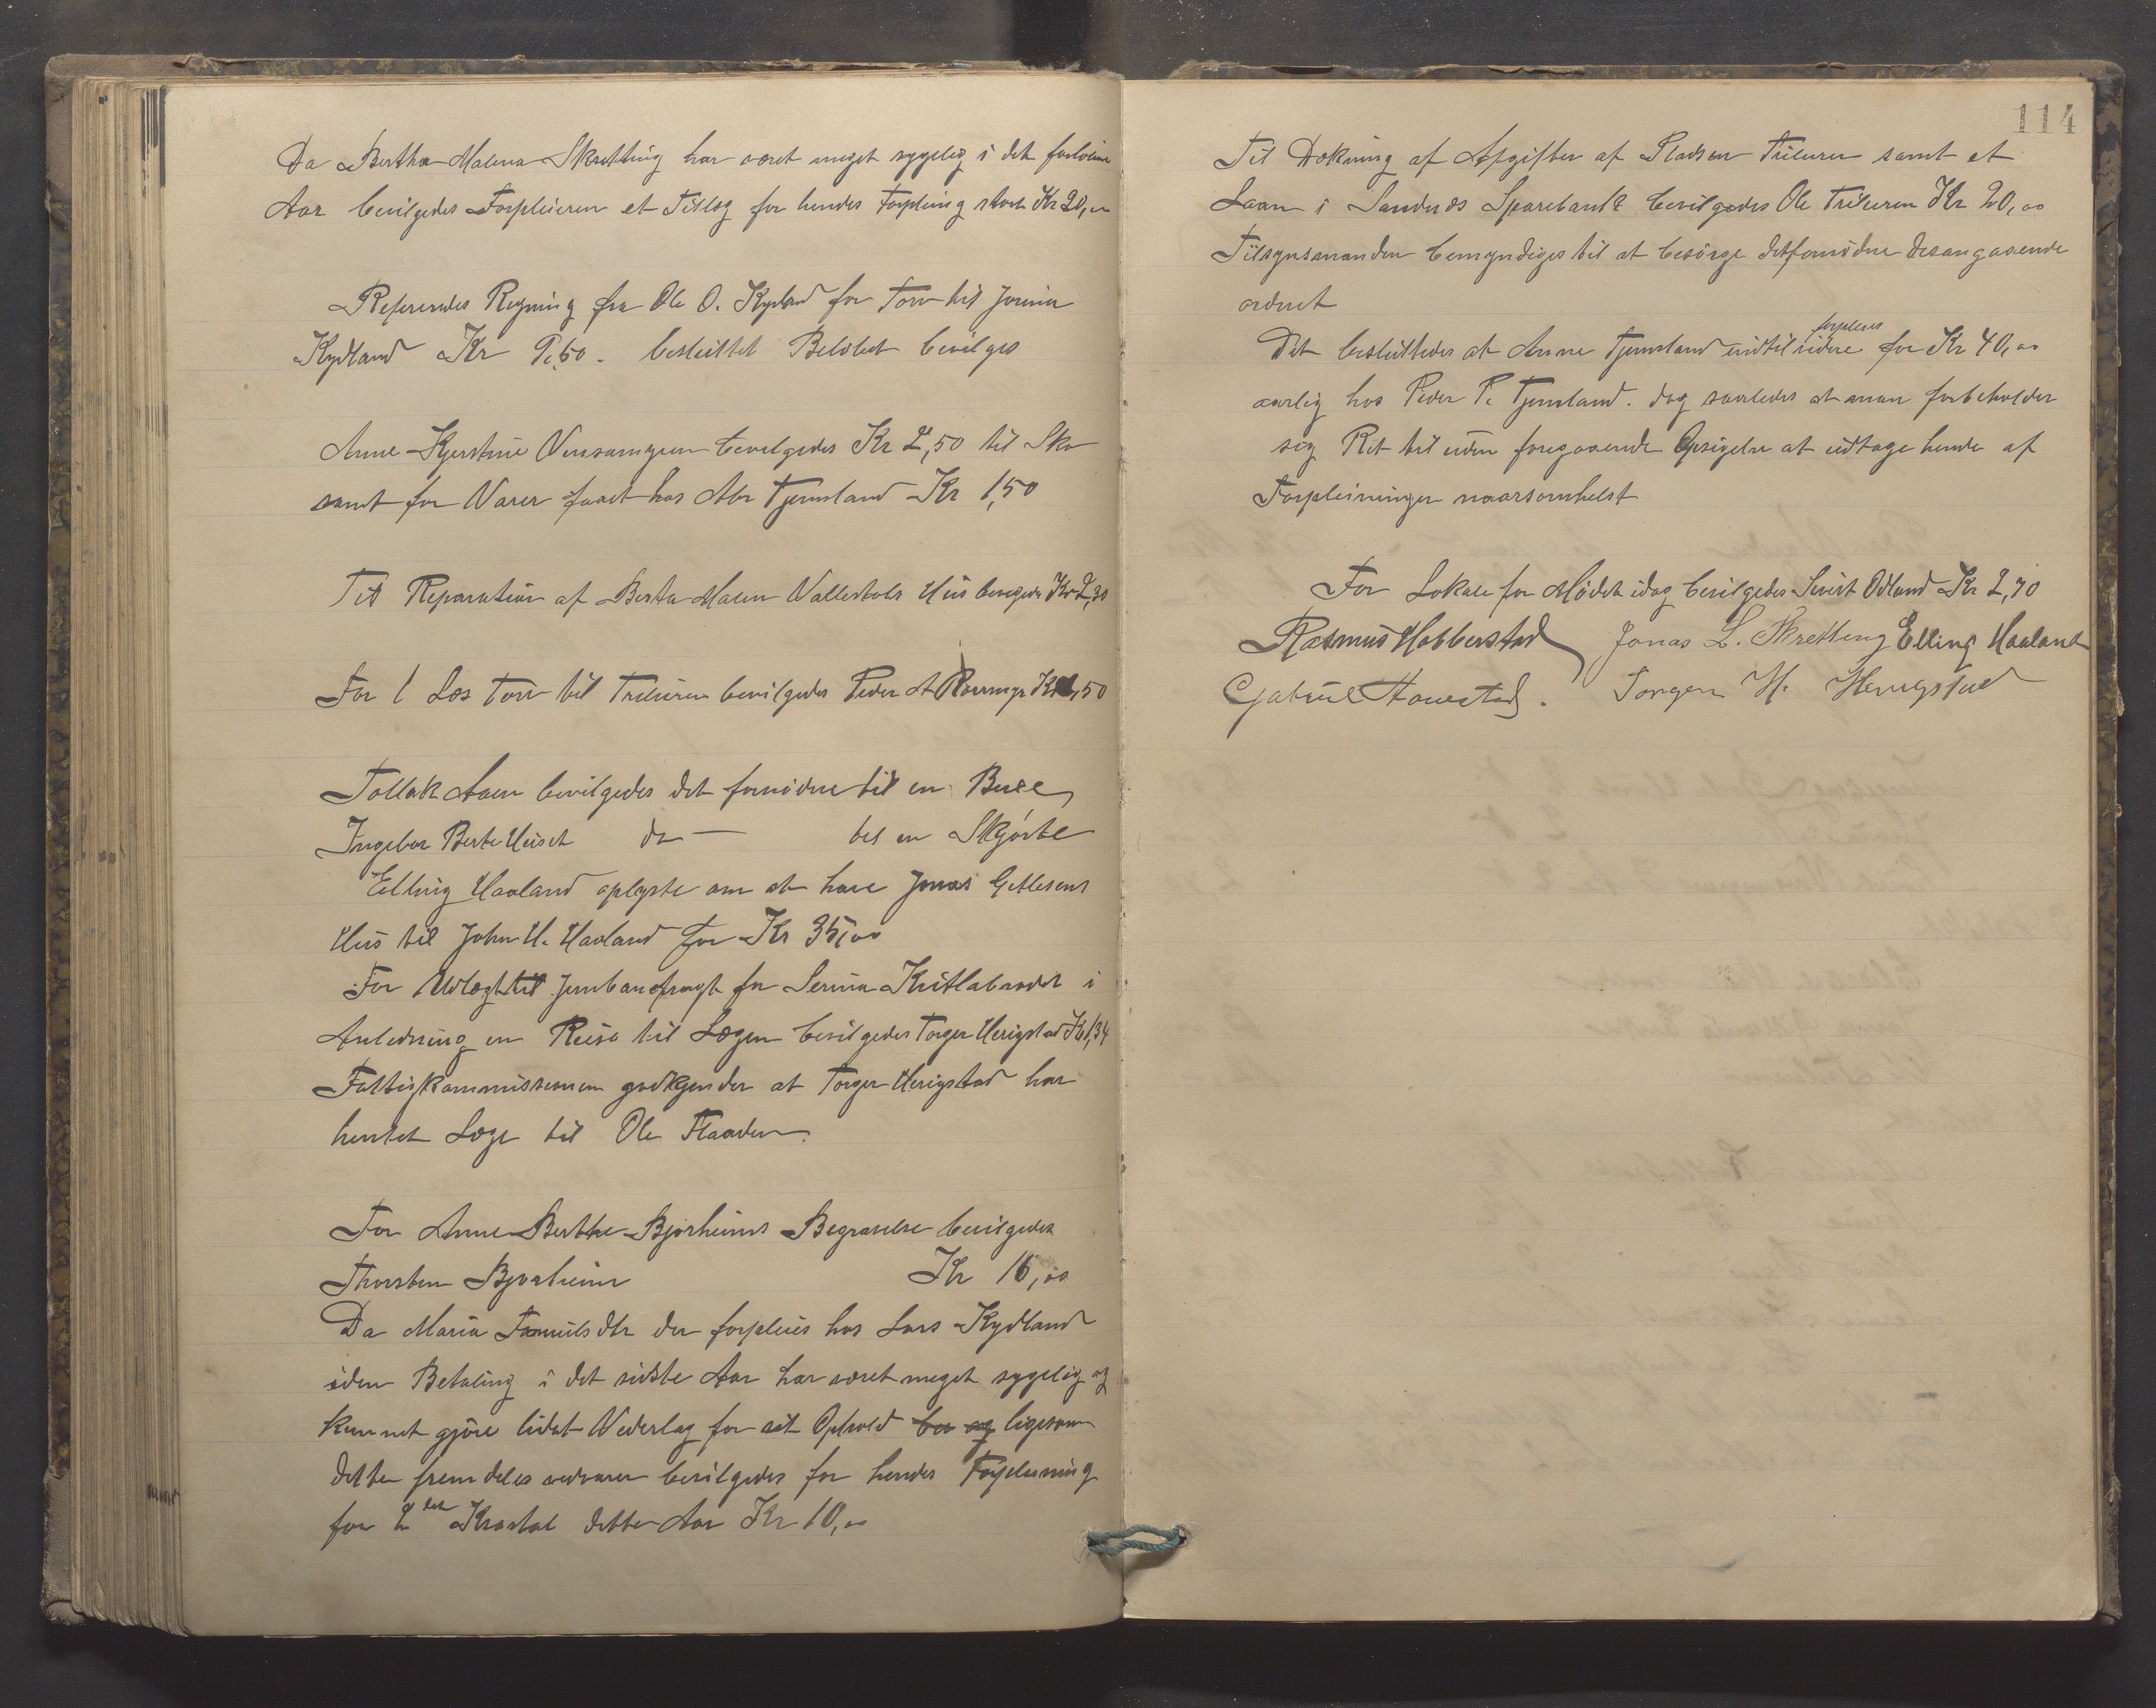 Da Bertha Malena Skretting har været meget sygelig i det forløbne
Aar bevilgedes Forpleieren et Tillæg for hendes Forpleining stort Kr 20,00
Refereredes Regning fra Ole O. Kydland for Torv til
Kydland Kr 50. besluttet Beløbet bevilges
Anne Kjerstine bevilgedes Kr 2,50 til Sko
samt for Varer faaet hos Abr Tjemsland Kr 1,50
Til Reparation af Berta Malen Hus Kr 2,30
For 1 Læs Torv til bevilgedes Peder A ,50
Tollak Aaen bevilgedes det fornødne til en Buxe
Ingebor Berte Huset do — til en Skjørte
Elling Haaland oplyste om at have Jonas Gitlesens
Hus til John H. Haaland for Kr 35,00
For Udlæg til Jernbanefragt for Serina i
Anledning en Reise til Lægen bevilgedes Torger Herigstad Kr 1,34
Fattigkommissionen godkjender at Torger Herigstad har
hentet Læge til Ole Flaaden.
For Anne Berthe Bjørheims Begravelse bevilgedes
Thorsten Bjørheim Kr 16,00
Da Maria der forpleies hos Lars Kydland
uden Betaling i det sidste Aar har været meget sygelig og
kunnet gjøre lidet Vederlag for sit Ophold ligesom
dette fremdeles vedvarer bevilgedes for hendes Forpleining
for 2det Kvartal dette Aar Kr 10,00
114
Til Dækning af Afgifter af Pladsen samt et
Laan i Sandnes Sparebank bevilgedes Ole Kr 20,00
Tilsynsmanden bemyndiges til at besørge det fornødne desangaaende
ordnet
forpleies
Det besluttedes at Anne Tjemsland indtil videre for Kr 40,00
aarlig hos Peder P. Tjemsland. dog saaledes at man forbeholder
sig Ret til uden foregaaende Opsigelse at udtage hende af
Forpleiningen naarsomhelst
For Lokale for Mødet idag bevilgedes Sivert Odland Kr 2,70
Rasmus Hobberstad Jonas L. Skretting Elling Haaland
Gabriel Torger H. Herigstad